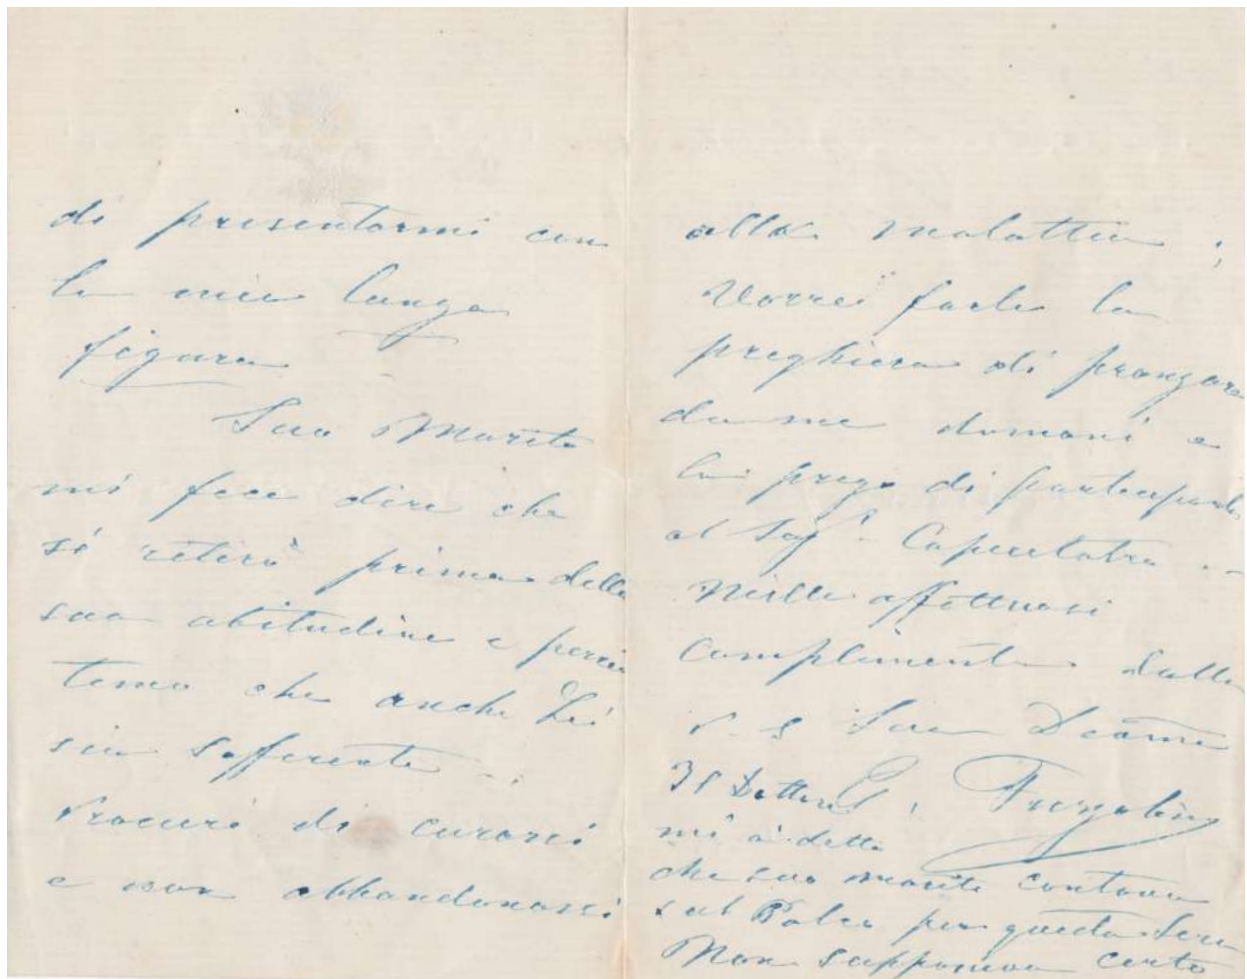 di presentarmi con
la mia lunga
figura
Suo Marito
mi fece dire che
si ritirò prima della
sua abitudine e perciò
temo che anche Lei
sia sofferente
Procuri di curarsi
e non abbandonarsi
alla malattia ;
Vorrei farle la
preghiera di pranzare
da me domani e
la prego di parteciparlo
al Sig.r Capecelatro
Mille affettuosi
complimenti dalla
Sua Devma
E. Frezzolini
P. S
Il Dottore
mi à detto
che suo marito contava
sul Palco per questa sera
Non supponeva certo